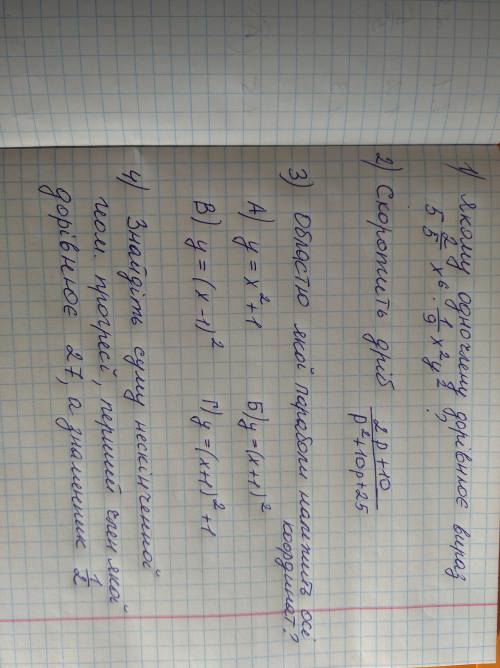 1) Якому одночлену дорівнює вираз
5 2/5 x⁶ · 1/9 x² y²?
2) Скоротить дріб (2p+10)/(p²+10p+25)
3) Областю якої параболи належить осі
координат?
А) y = x² + 1 Б) y = (x+1)²
В) y = (x-1)² Г) y = (x+1)² + 1
4) Знайдіть суму нескінченної
геом. прогресї, перший член якої
дорівнює 27, а знаменник 1/2